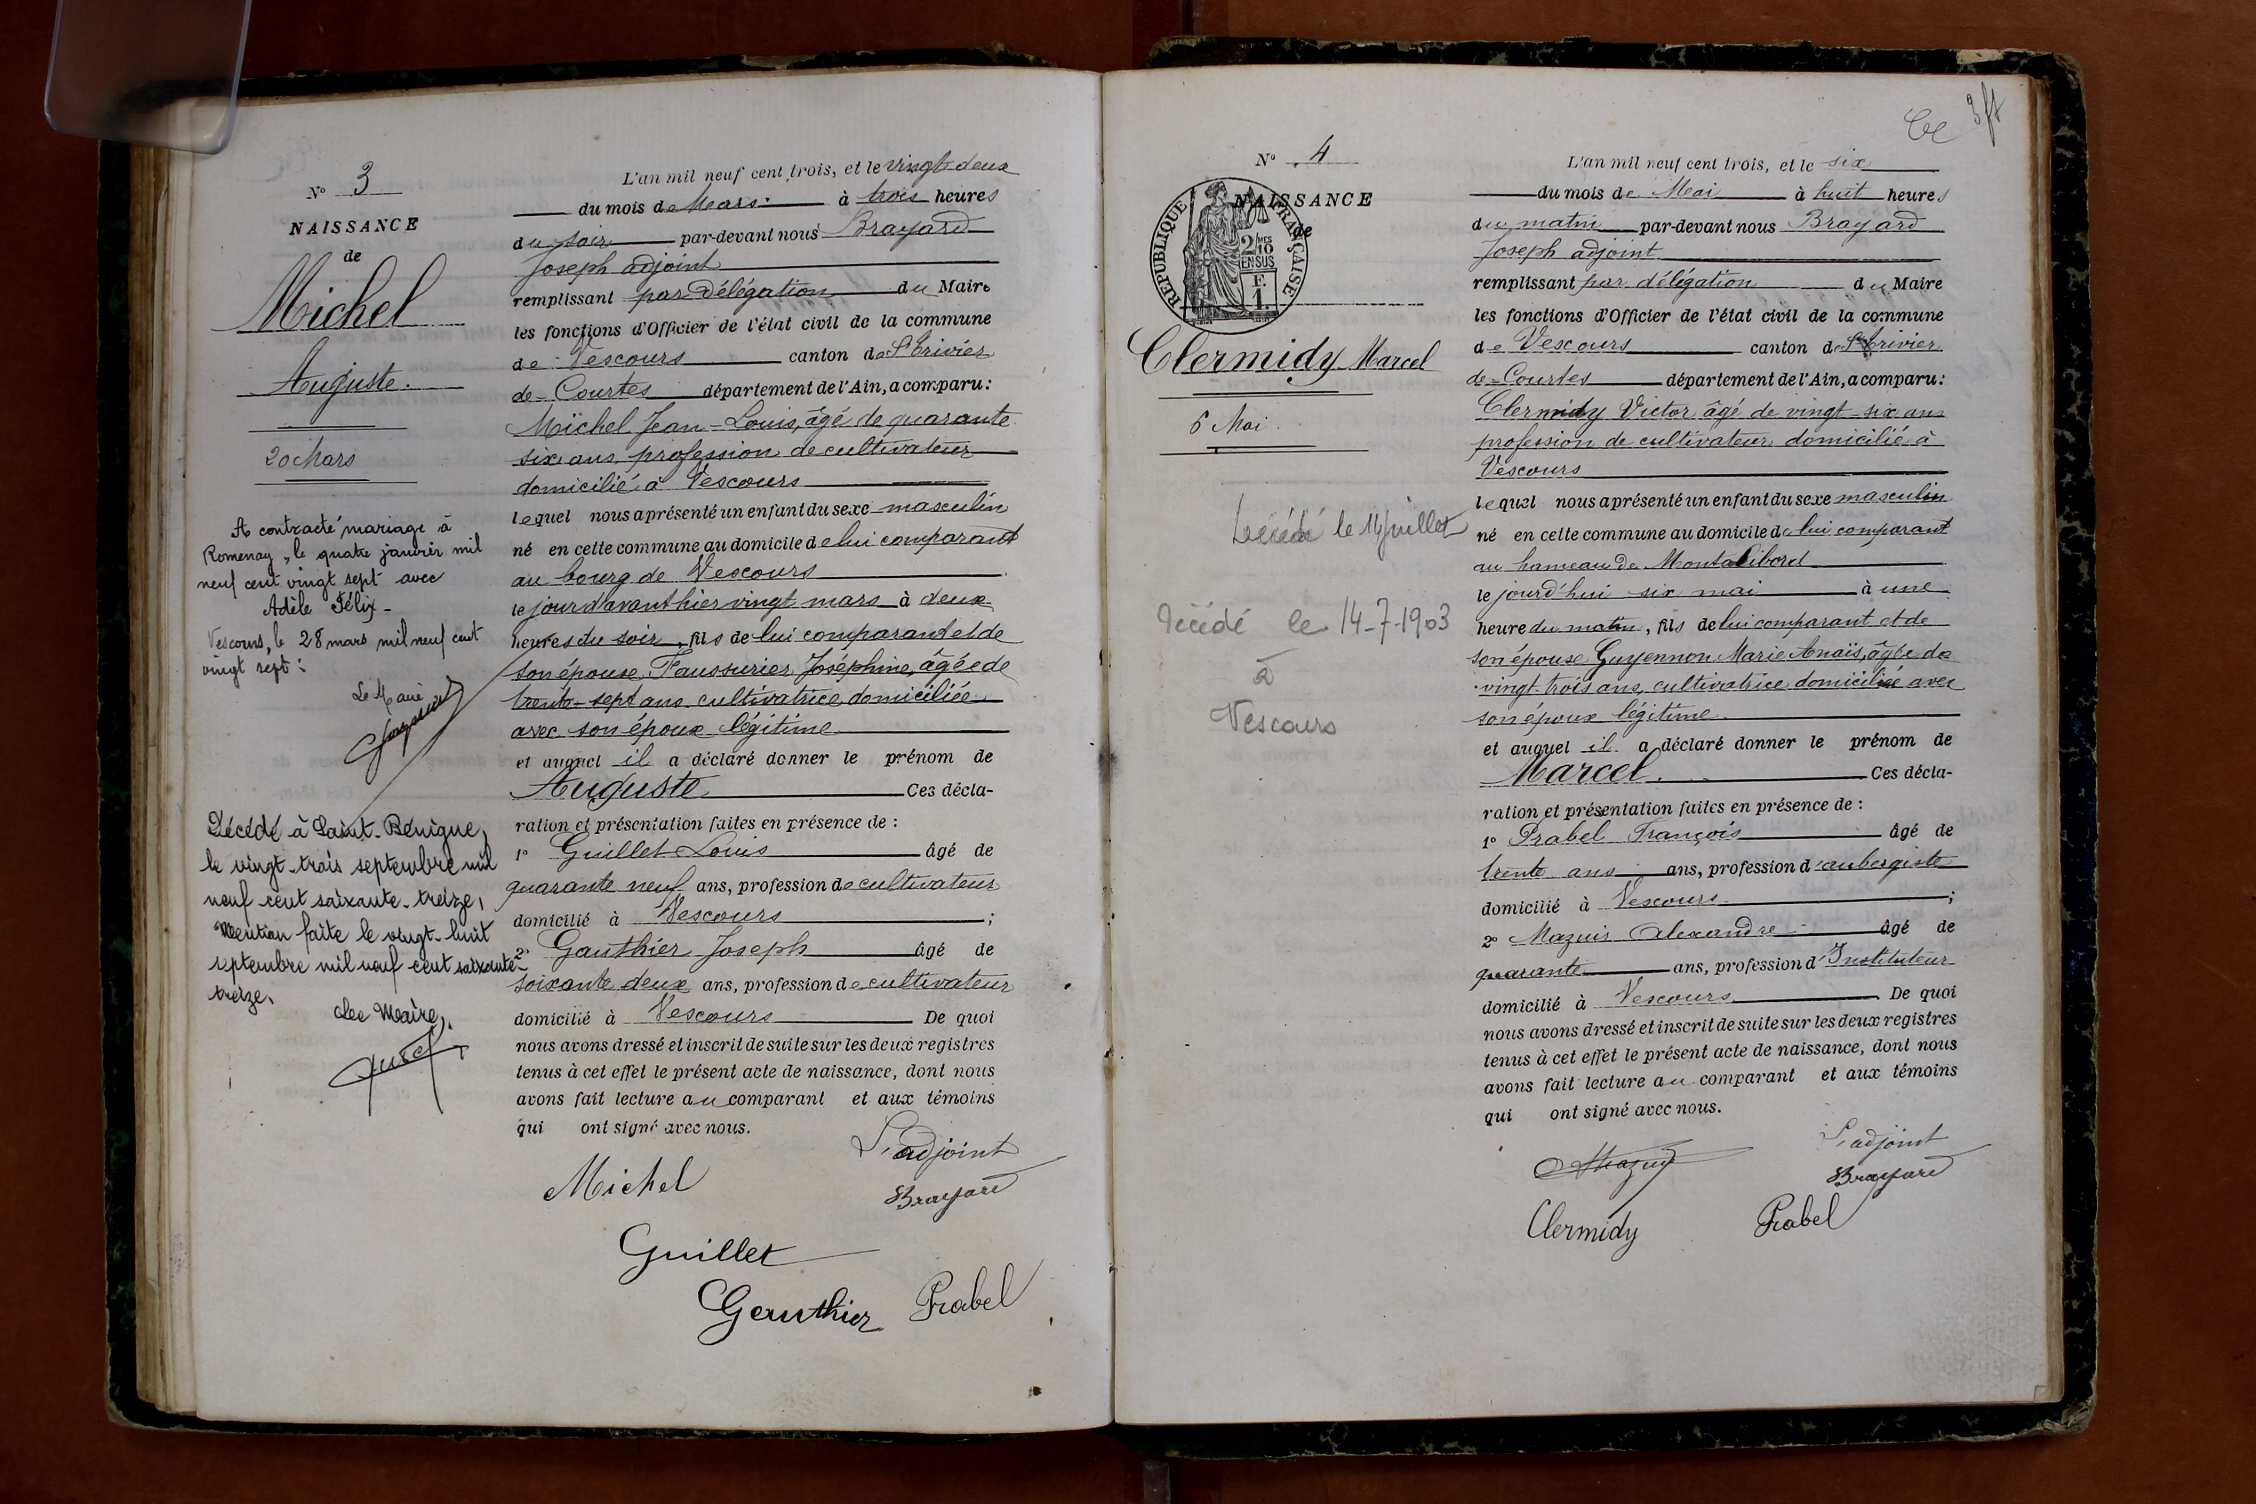 N° 3
NAISSANCE
de
Michel
Auguste.
20 Mars
A contracté mariage à
Romenay, le quatre janvier mil
neuf cent vingt sept avec
Adèle Félix -
Vescours, le 28 mars mil neuf cent
vingt sept :
Le Maire
Décédé à Saint-Bénigne,
le vingt-trois septembre mil
neuf cent soixante-treize,
Mention faite le vingt-huit
septembre mil neuf cent soixante-
treize,
Le Maire,
L'an mil neuf cent trois, et le vingt-deux
du mois de Mars à trois heures
du soir par-devant nous Brayard
Joseph adjoint
remplissant par délégation du Maire
les fonctions d'Officier de l'état civil de la commune
de Vescours canton de St Trivier
de-Courtes département de l'Ain, a comparu :
Michel Jean-Louis, âgé de quarante
six ans, profession de cultivateur
domicilié à Vescours
lequel nous a présenté un enfant du sexe masculin
né en cette commune au domicile de lui comparant
au bourg de Vescours
le jour d'avant hier vingt mars à deux
heures du soir, fils de lui comparant et de
son épouse Faussurier Joséphine, âgée de
trente-sept ans, cultivatrice domiciliée
avec son époux légitime
et auquel il a déclaré donner le prénom de
Auguste Ces décla-
ration et présentation faites en présence de :
1° Guillet Louis âgé de
quarante neuf ans, profession de cultivateur
domicilié à Vescours ;
2° Gauthier Joseph âgé de
soixante deux ans, profession de cultivateur
domicilié à Vescours De quoi
nous avons dressé et inscrit de suite sur les deux registres
tenus à cet effet le présent acte de naissance, dont nous
avons fait lecture au comparant et aux témoins
qui ont signé avec nous.
L'adjoint
Michel
Brayard
Guillet
Gauthier Prabel
3 ft
N° 4
NAISSANCE
de
RÉPUBLIQUE FRANÇAISE
2/10 MES
EN SUS
F.
1.
Clermidy Marcel
6 Mai
Décédé le 14 juillet
Décédé le 14-7-1903
à
Vescours
L'an mil neuf cent trois, et le six
du mois de Mai à huit heures
du matin par-devant nous Brayard
Joseph adjoint
remplissant par délégation du Maire
les fonctions d'Officier de l'état civil de la commune
de Vescours canton de St Trivier
de-Courtes département de l'Ain, a comparu :
Clermidy Victor âgé de vingt-six ans
profession de cultivateur domicilié à
Vescours
lequel nous a présenté un enfant du sexe masculin
né en cette commune au domicile de lui comparant
au hameau de Montalibord
le jourd'hui six mai à une
heure du matin, fils de lui comparant et de
son épouse Guyennon Marie Anaïs, âgée de
vingt-trois ans, cultivatrice domiciliée avec
son époux légitime
et auquel il a déclaré donner le prénom de
Marcel. Ces décla-
ration et présentation faites en présence de :
1° Prabel François âgé de
trente ans ans, profession d'aubergiste
domicilié à Vescours ;
2° Mazuis Alexandre âgé de
quarante ans, profession d'Instituteur
domicilié à Vescours De quoi
nous avons dressé et inscrit de suite sur les deux registres
tenus à cet effet le présent acte de naissance, dont nous
avons fait lecture au comparant et aux témoins
qui ont signé avec nous.
L'adjoint
Brayard
Clermidy Prabel